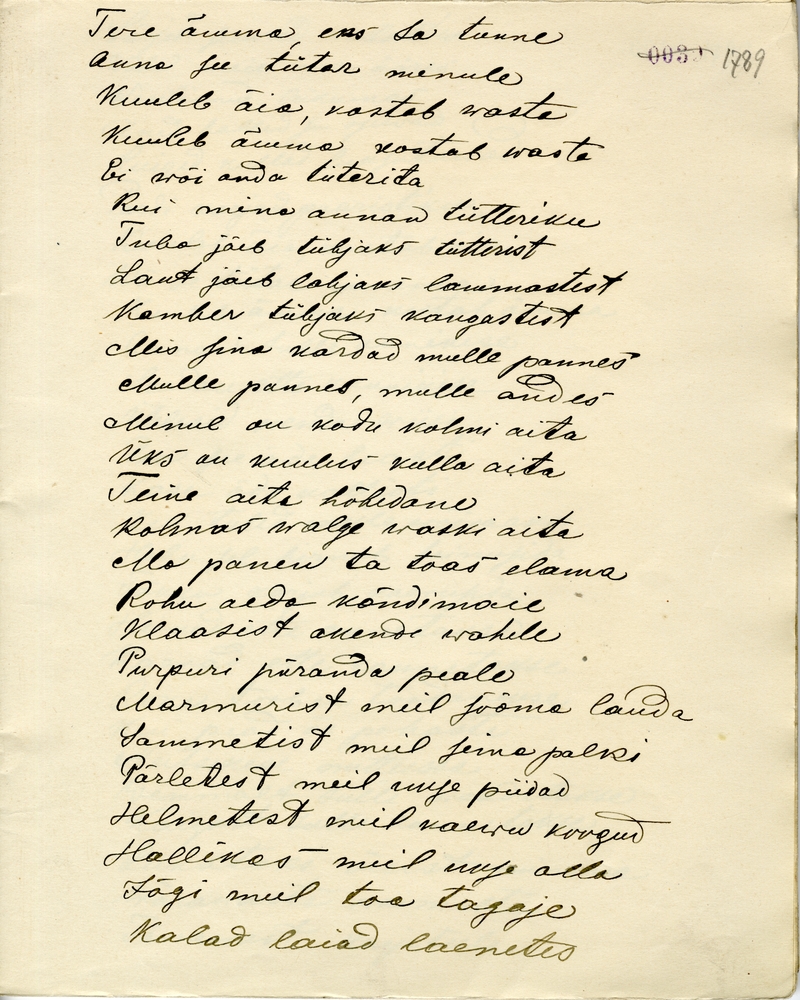 Tere ämma, eks Sa tunne
Anna see tütar minule
Kuuleb äia, kostab wasta
Kuuleb ämma kostab wasta
Ei wõi anda tüterita
Kui mina annan tütteriku
Tuba jäeb tühjaks tütterist
Laut jäeb lahjaks lammastest
Kamber tühjaks kangastest
Mis sina kardad mulle pannes
Mulle pannes, mulle andes
Minul on kodu kolmi aita
Üks on kuulus kulla aita
Teine aita hõbedane
Kolmas walge waski aita
Ma panen ta toas elama
Rohu aeda kõndimaie
Klaasist akende wahele
Purpuri püranda peale
Marmurist meil sööma lauda
Sammetist meil seina palki
Pärletest meil uuse piidad
Helmetest meil kaewu koogud
Hallikas meil uuse alla
Jõgi meil toa tagaje
Kalad laiad laenetes
1789